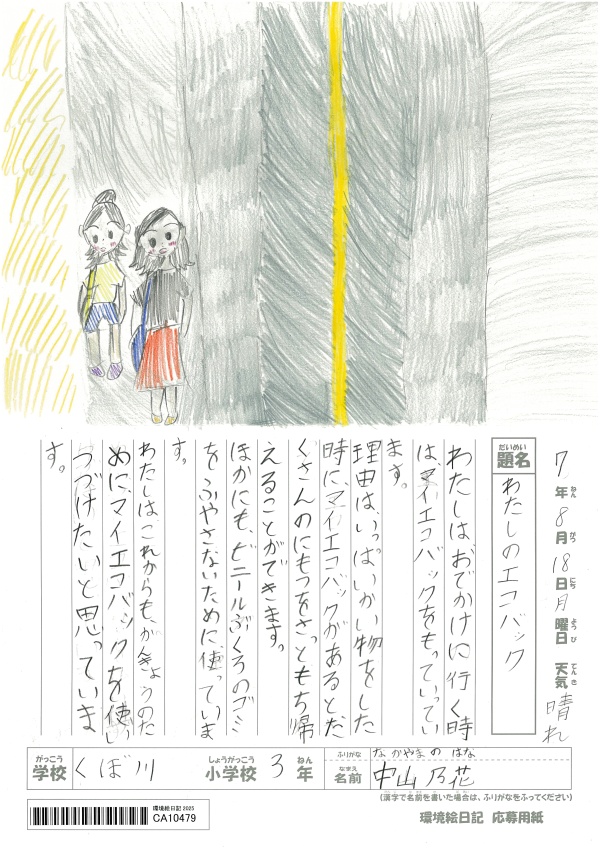 7年ねん8月がつ18日にち月曜よう日び 天気てんき晴れ
だいめい
題名
わたしのエコバック
わたしは、おでかけに行く時
は、マイエコバックをもっていってい
ます。
理由は、いっぱいかい物をした
時に、マイエコバックがあるとだ
くさんのにもつをさっともち帰
えることができます。
ほかにも、ビニールぶくろのゴミ
をふやさないために、使っていま
す。
わたしは、これからも、かんきょうのた
めに、マイエコバックを使い
つづけたいと思っていま
す。
がっこう
学校
くぼ川
しょうがっこう
小学校
3
ねん
年
ふりがな
なかやま の はな
なまえ
名前
中山 乃花
(漢字で名前を書いた場合は、ふりがなをふってください)
環境絵日記 2025
CA10479
環境絵日記 応募用紙